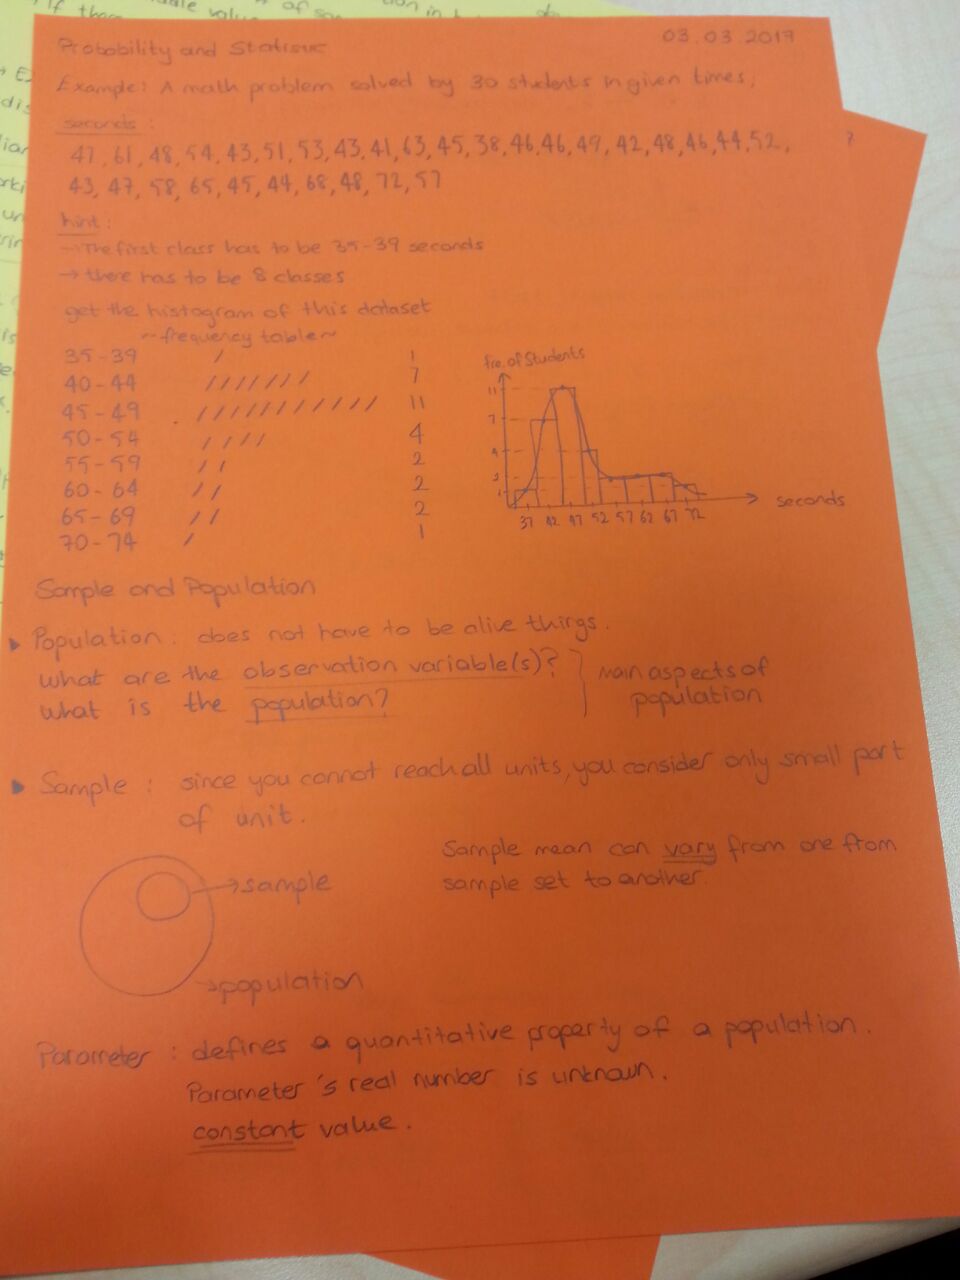 Probability and Statistic
03.03.2017
Example: A math problem solved by 30 students in given times,
seconds:
47, 61, 48, 54, 43, 51, 53, 43, 41, 63, 45, 38, 46, 46, 49, 42, 48, 46, 44, 52,
43, 47, 58, 65, 45, 44, 68, 48, 72, 57
hint:
→ The first class has to be 35-39 seconds
→ there has to be 8 classes
get the histogram of this dataset
~frequency table~
35-39 / 1
40-44 /////// 7
45-49 /////////// 11
50-54 //// 4
55-59 // 2
60-64 // 2
65-69 // 2
70-74 / 1
fre. of Students
11
7
4
2
1
37 42 47 52 57 62 67 72
seconds
Sample and Population
▸ Population: does not have to be alive things.
what are the observation variable(s)?
what is the population?
main aspects of
population
▸ Sample: since you cannot reach all units, you consider only small part
of unit.
Sample mean can vary from one from
sample set to another.
→sample
→population
Parameter: defines a quantitative property of a population.
Parameter's real number is unknown.
constant value.